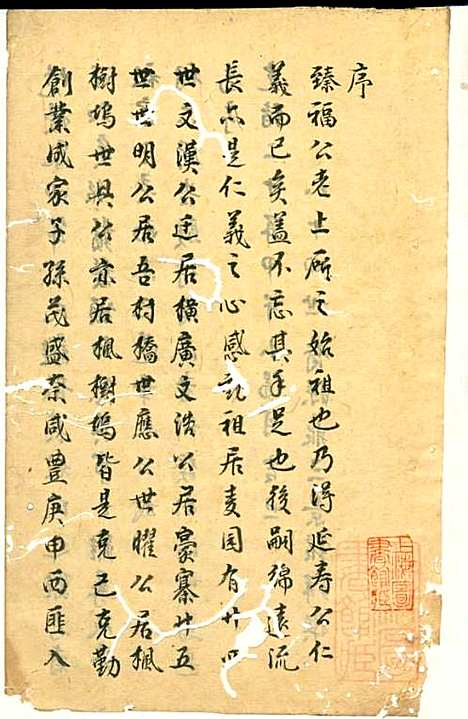 序
臻福公老上所之始祖也乃得延寿公仁
義而已矣盖不忘其手足也後嗣绵遠流
長亦是仁義之心感 祖居麦园有廿四
世文漢公迁居横廣文浩公居豪寨廿五
世世明公居吾村橋世應公世曜公居楓
樹塢世興公亦居楓樹塢皆是克己克勤
創業成家子孫茂盛奈咸豊庚申西匪入